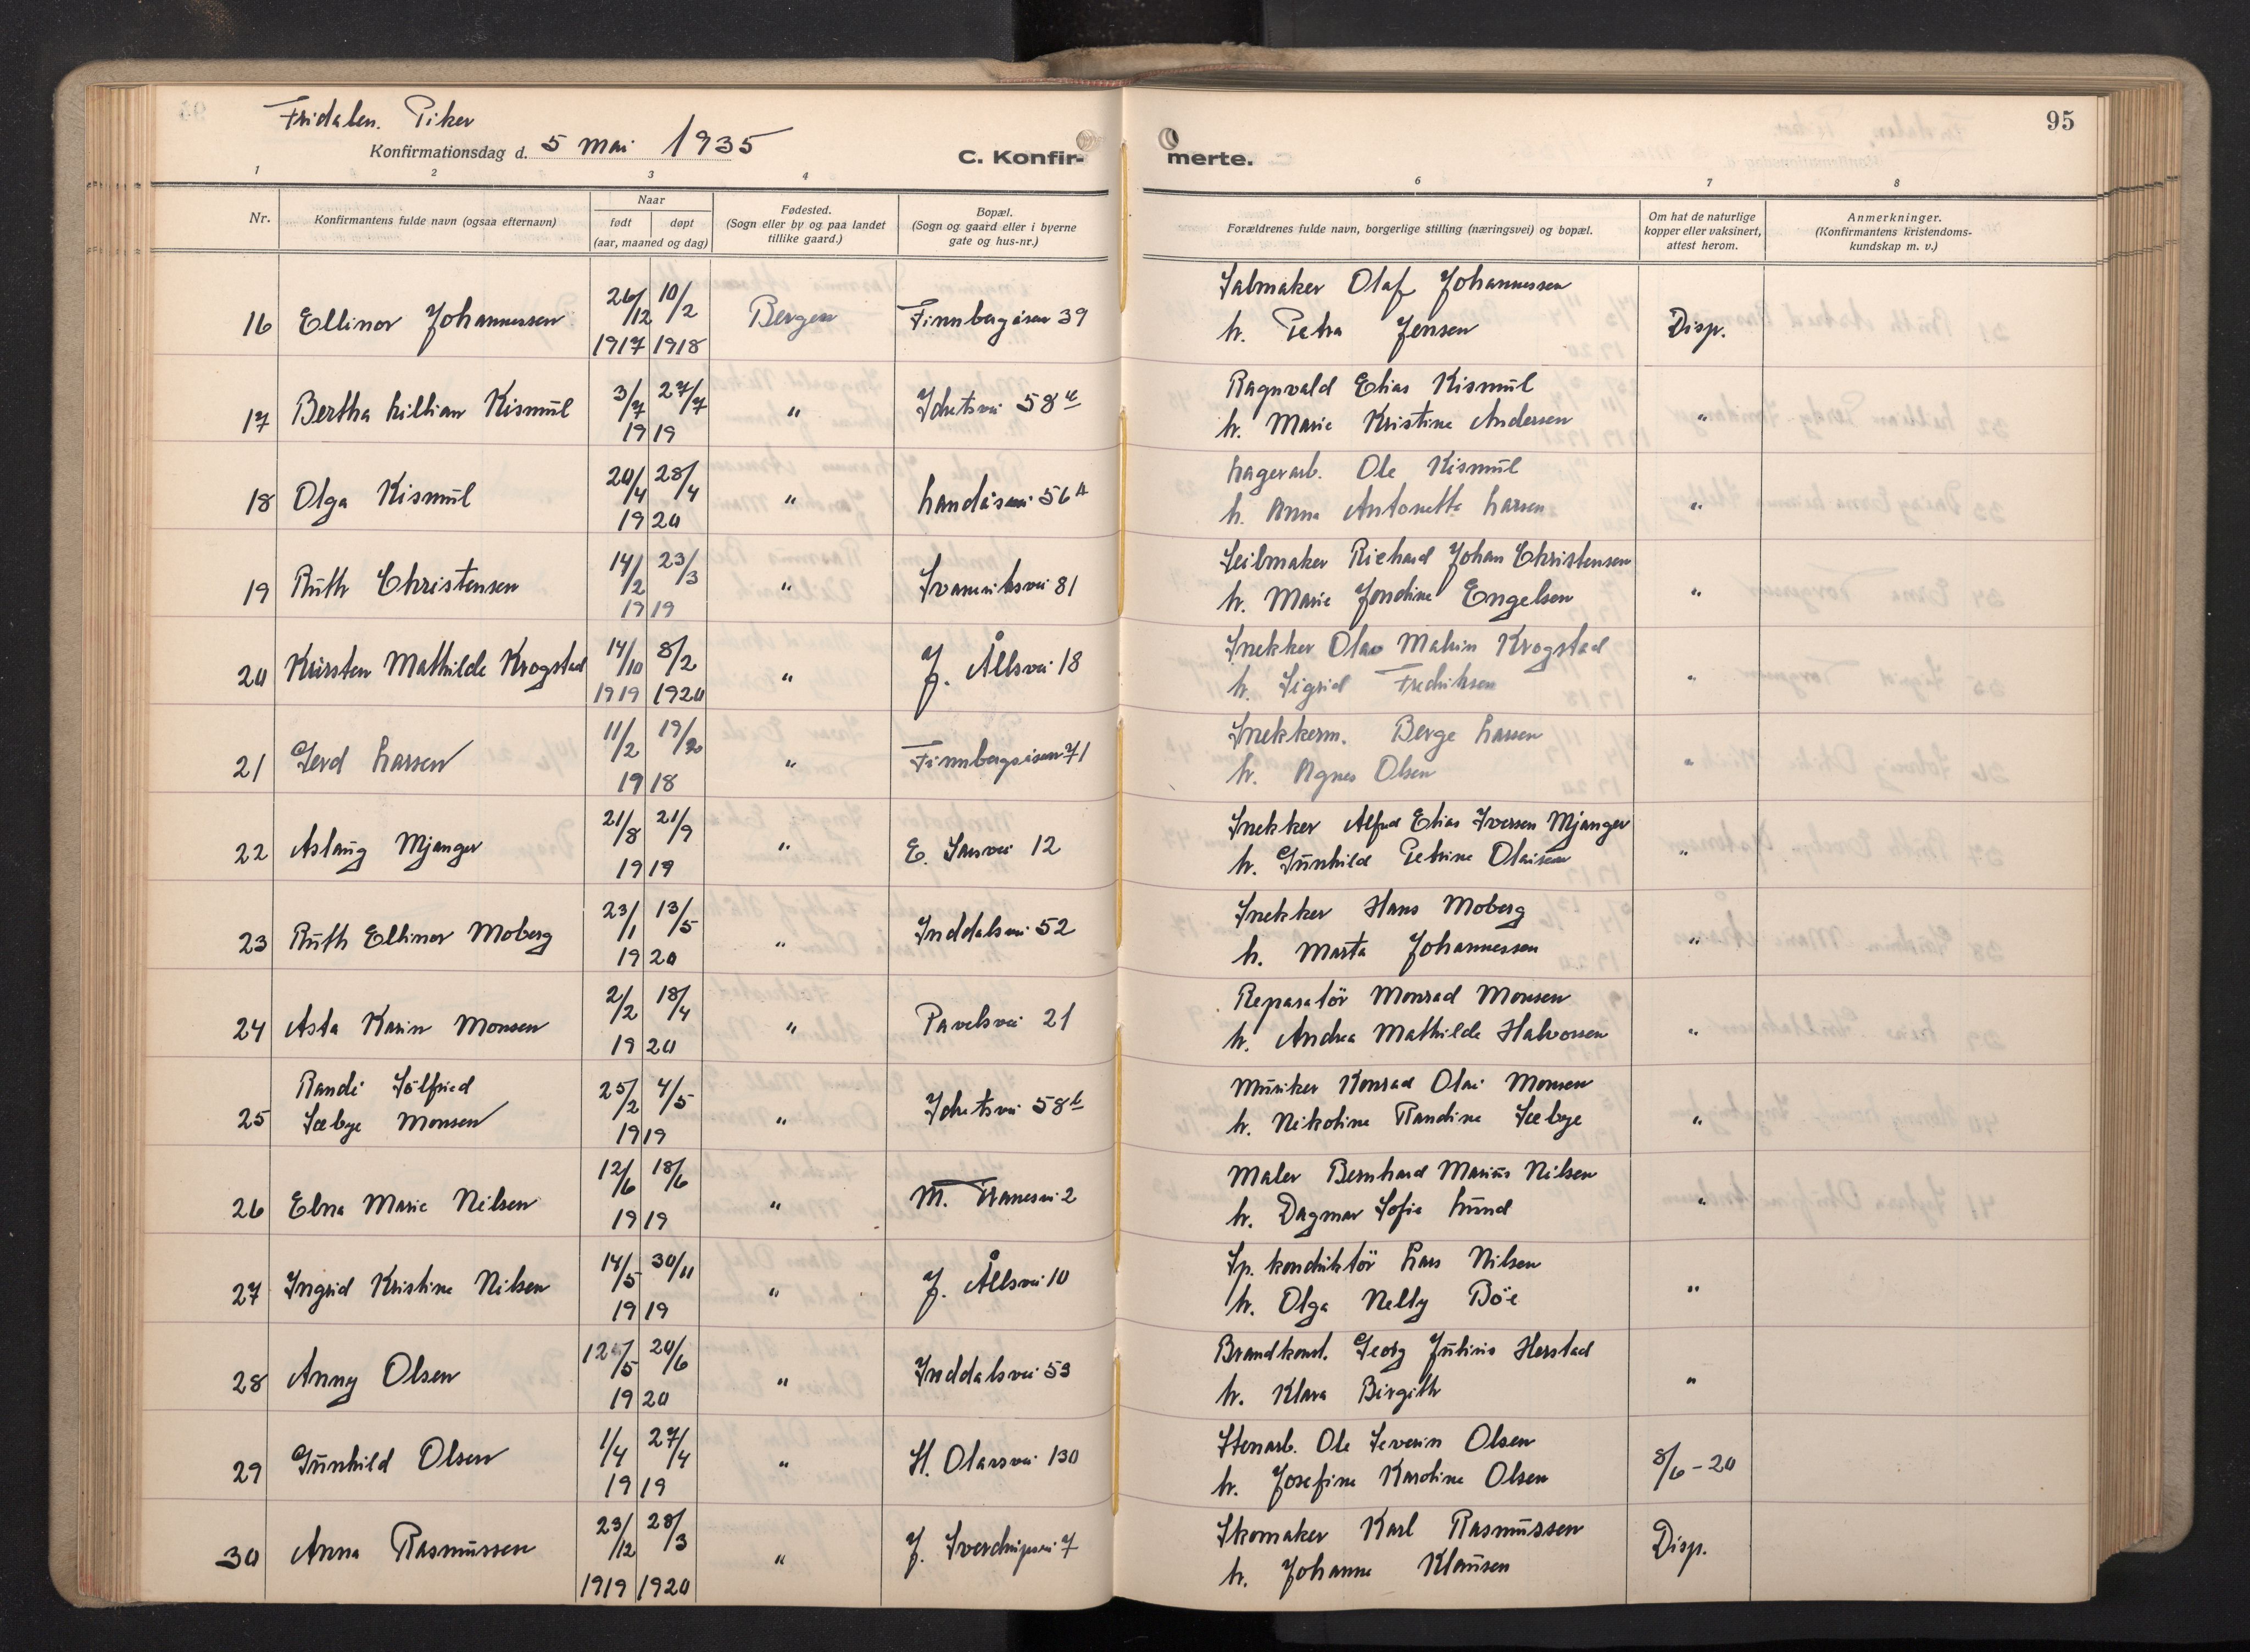 Fridalen. Piker
Konfirmationsdag d. 5 mai 1935
C. Konfir-
merte.
95
1 2 3 4 6 7 8
Nr.
Konfirmantens fulde navn (ogsaa efternavn)
Naar
født døpt
(aar, maaned og dag)
Fødested.
(Sogn eller by og paa landet
tillike gaard.)
Bopæl.
(Sogn og gaard eller i byerne
gate og hus-nr.)
Forældrenes fulde navn, borgerlige stilling (næringsvei) og bopæl.
Om hat de naturlige
kopper eller vaksinert,
attest herom.
Anmerkninger.
(Konfirmantens kristendoms-
kundskap m. v.)
Salmaker Olaf Johannessen
16 Ellinor Johannessen 26/12 1917 10/2 1918 Bergen Finnbergåsen 39
h. Petra Jensen Disp.
Ragnvald Elias Kismul
17 Bertha Lillian Kismul 3/7 27/7 1919 " Idretsvei 58
h. Marie Kristine Andersen "
Lagerarb. Ole Kismul
18 Olga Kismul 20/4 28/4 1920 " Landåsvei 56A
h. Anna Antonette Larsen "
Seilmaker Richard Johan Christensen
19 Ruth Christensen 14/2 23/3 1919 " Svaneviksvei 81
h. Marie Jondine Engelsen "
Snekker Olav Krogstad
20 Kirsten Mathilde Krogstad 14/10 1919 8/2 1920 " J. Ållsvei 18
h. Sigrid Fredriksen "
Snekkerm. Berge Larsen
21 Gerd Larsen 11/2 19/ 1918 " Finnbergåsen 71
h. Agnes Olsen "
Snekker Alfred Elias Iversen Mjanger
22 Aslaug Mjanger 21/8 21/9 1919 " E. Sarsvei 12
h. Gunhild Petrine Olaisen "
Snekker Hans Moberg
23 Ruth Ellinor Moberg 23/1 13/5 1920 " Inddalsvei 52
h. Marta Johannessen "
Reparatör Monrad Monsen
24 Asta Karin Monsen 2/2 18/4 1920 " Pavelsvei 21
h. Andrea Mathilde Halvorsen "
Randi Sölfried
25 Sæbye Monsen 25/2 4/5 1919 " Idretsvei 58
Musiker Konrad Olai Monsen
h. Nikoline Randine Sæbye "
Maler Bernhard Marius Nilsen
26 Elna Marie Nilsen 12/6 18/6 1919 " M. Tranesvei 2
h. Dagmar Sofie Lund "
Sp. konduktör Lars Nilsen
27 Ingrid Kristine Nilsen 14/5 30/11 1919 " J. Ållsvei 10
h. Olga Nelly Böe "
Brandkonst. Georg Julius Herstad
28 Anny Olsen 12/5 20/6 1920 " Inddalsvei 53
h. Klara Birgith "
Stenarb. Ole Severin Olsen
29 Gunhild Olsen 1/4 27/4 1919 " H. Olarsvei 130
h. Josefine Karoline Olsen 8/6-20
Skomaker Karl Rasmussen
30 Anna Rasmussen 23/12 1919 28/3 1920 " J. Sverdrupsvei 7
h. Johanne Klausen Disp.